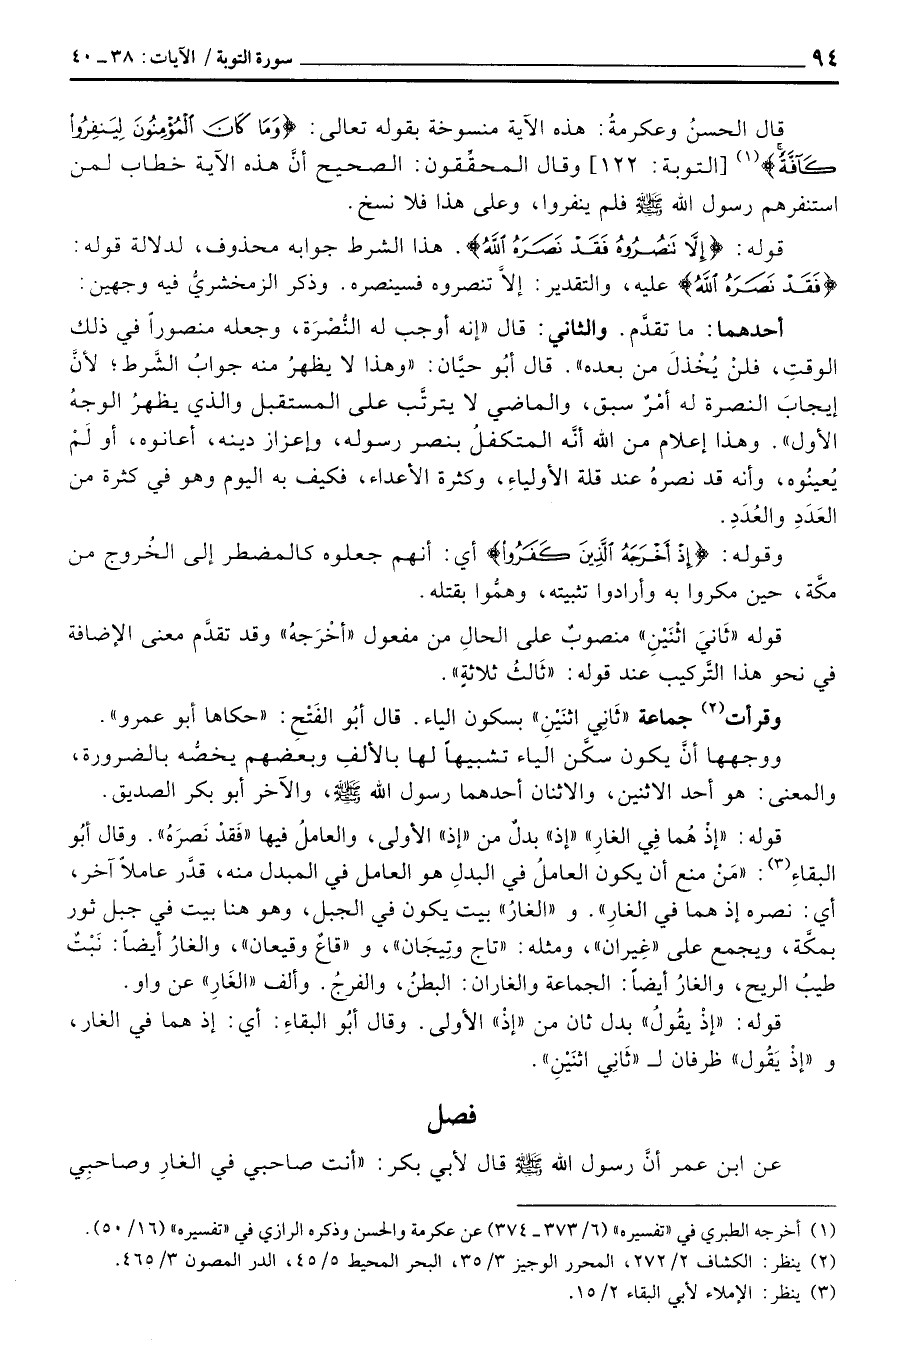 ٩٤ سورة التوبة / الآيات: ٣٨ ـ ٤٠
قال الحسنُ وعكرمةُ: هذه الآية منسوخة بقوله تعالى: ﴿وَمَا كَانَ ٱلْمُؤْمِنُونَ لِيَنفِرُوا۟
كَآفَّةً﴾(١) [التوبة: ١٢٢] وقال المحقِّقون: الصحيح أنَّ هذه الآية خطاب لمن
استنفرهم رسول الله ﷺ فلم ينفروا، وعلى هذا فلا نسخ.
قوله: ﴿إِلَّا نَصُرُوهُ فَقَدْ نَصَرَهُ ٱللَّهُ﴾. هذا الشرط جوابه محذوف، لدلالة قوله:
﴿فَقَدْ نَصَرَهُ ٱللَّهُ﴾ عليه، والتقدير: إلاَّ تنصروه فسينصره. وذكر الزمخشريُّ فيه وجهين:
أحدهما: ما تقدَّم. والثاني: قال «إنه أوجب له النُّصْرَة، وجعله منصوراً في ذلك
الوقتِ، فلنْ يُخْذلَ من بعده». قال أبُو حيَّان: «وهذا لا يظهرُ منه جوابُ الشَّرط؛ لأنَّ
إيجابَ النصرة له أمْرٌ سبق، والماضي لا يترتَّب على المستقبل والذي يظهرُ الوجهُ
الأول». وهذا إعلام من الله أنَّه المتكفلُ بنصر رسوله، وإعزاز دينه، أعانوه، أو لَمْ
يُعينُوه، وأنه قد نصرهُ عند قلة الأولياءِ، وكثرة الأعداء، فكيف به اليوم وهو في كثرة من
العَدَدِ والعُدَدِ.
وقوله: ﴿إِذْ أَخْرَجَهُ ٱلَّذِينَ كَفَرُوا۟﴾ أي: أنهم جعلوه كالمضطر إلى الخُروج من
مكَّة، حين مكروا به وأرادوا تثبيته، وهمُّوا بقتله.
قوله «ثَانيَ اثْنَيْنِ» منصوبٌ على الحالِ من مفعول «أخْرَجهُ» وقد تقدَّم معنى الإضافة
في نحو هذا التَّركيب عند قوله: «ثَالثُ ثلاثةٍ».
وقرأت(٢) جماعة «ثَانِي اثنَيْنِ» بسكون الياء. قال أبُو الفَتْح: «حكاها أبو عمرو».
ووجهها أنَّ يكون سكَّن الياء تشبيهاً لها بالألف وبعضهم يخصُّه بالضرورة،
والمعنى: هو أحد الاثنين، والاثنان أحدهما رسول الله ﷺ، والآخر أبو بكر الصديق.
قوله: «إذْ هُما فِي الغارِ» «إذ» بدلٌ من «إذ» الأولى، والعاملُ فيها «فَقدْ نَصرَهُ». وقال أبُو
البقاءِ(٣): «مَنْ منع أن يكون العاملُ في البدلِ هو العامل في المبدل منه، قدَّر عاملاً آخر،
أي: نصره إذ هما في الغارِ». و «الغارُ» بيت يكون في الجبل، وهو هنا بيت في جبل ثور
بمكَّة، ويجمع على «غِيران»، ومثله: «تاج وتِيجَان»، و «قاعٌ وقيعان»، والغارُ أيضاً: نَبْتٌ
طيبُ الريح، والغارُ أيضاً: الجماعة والغاران: البطنُ، والفرجُ. وألف «الغَارِ» عن واو.
قوله: «إذْ يقُولُ» بدل ثان من «إذْ» الأولى. وقال أبُو البقاءِ: أي: إذ هما في الغار،
و «إذْ يَقُول» ظرفان لـ «ثَانِي اثنَيْنِ».
فصل
عن ابن عمر أنَّ رسول الله ﷺ قال لأبي بكر: «أنت صاحبي في الغارِ وصاحبِي
(١) أخرجه الطبري في «تفسيره» (٦/ ٣٧٣ ـ ٣٧٤) عن عكرمة والحسن وذكره الرازي في «تفسيره» (١٦/ ٥٠).
(٢) ينظر: الكشاف ٢/ ٢٧٢، المحرر الوجيز ٣/ ٣٥، البحر المحيط ٥/ ٤٥، الدر المصون ٣/ ٤٦٥.
(٣) ينظر: الإملاء لأبي البقاء ٢/ ١٥.